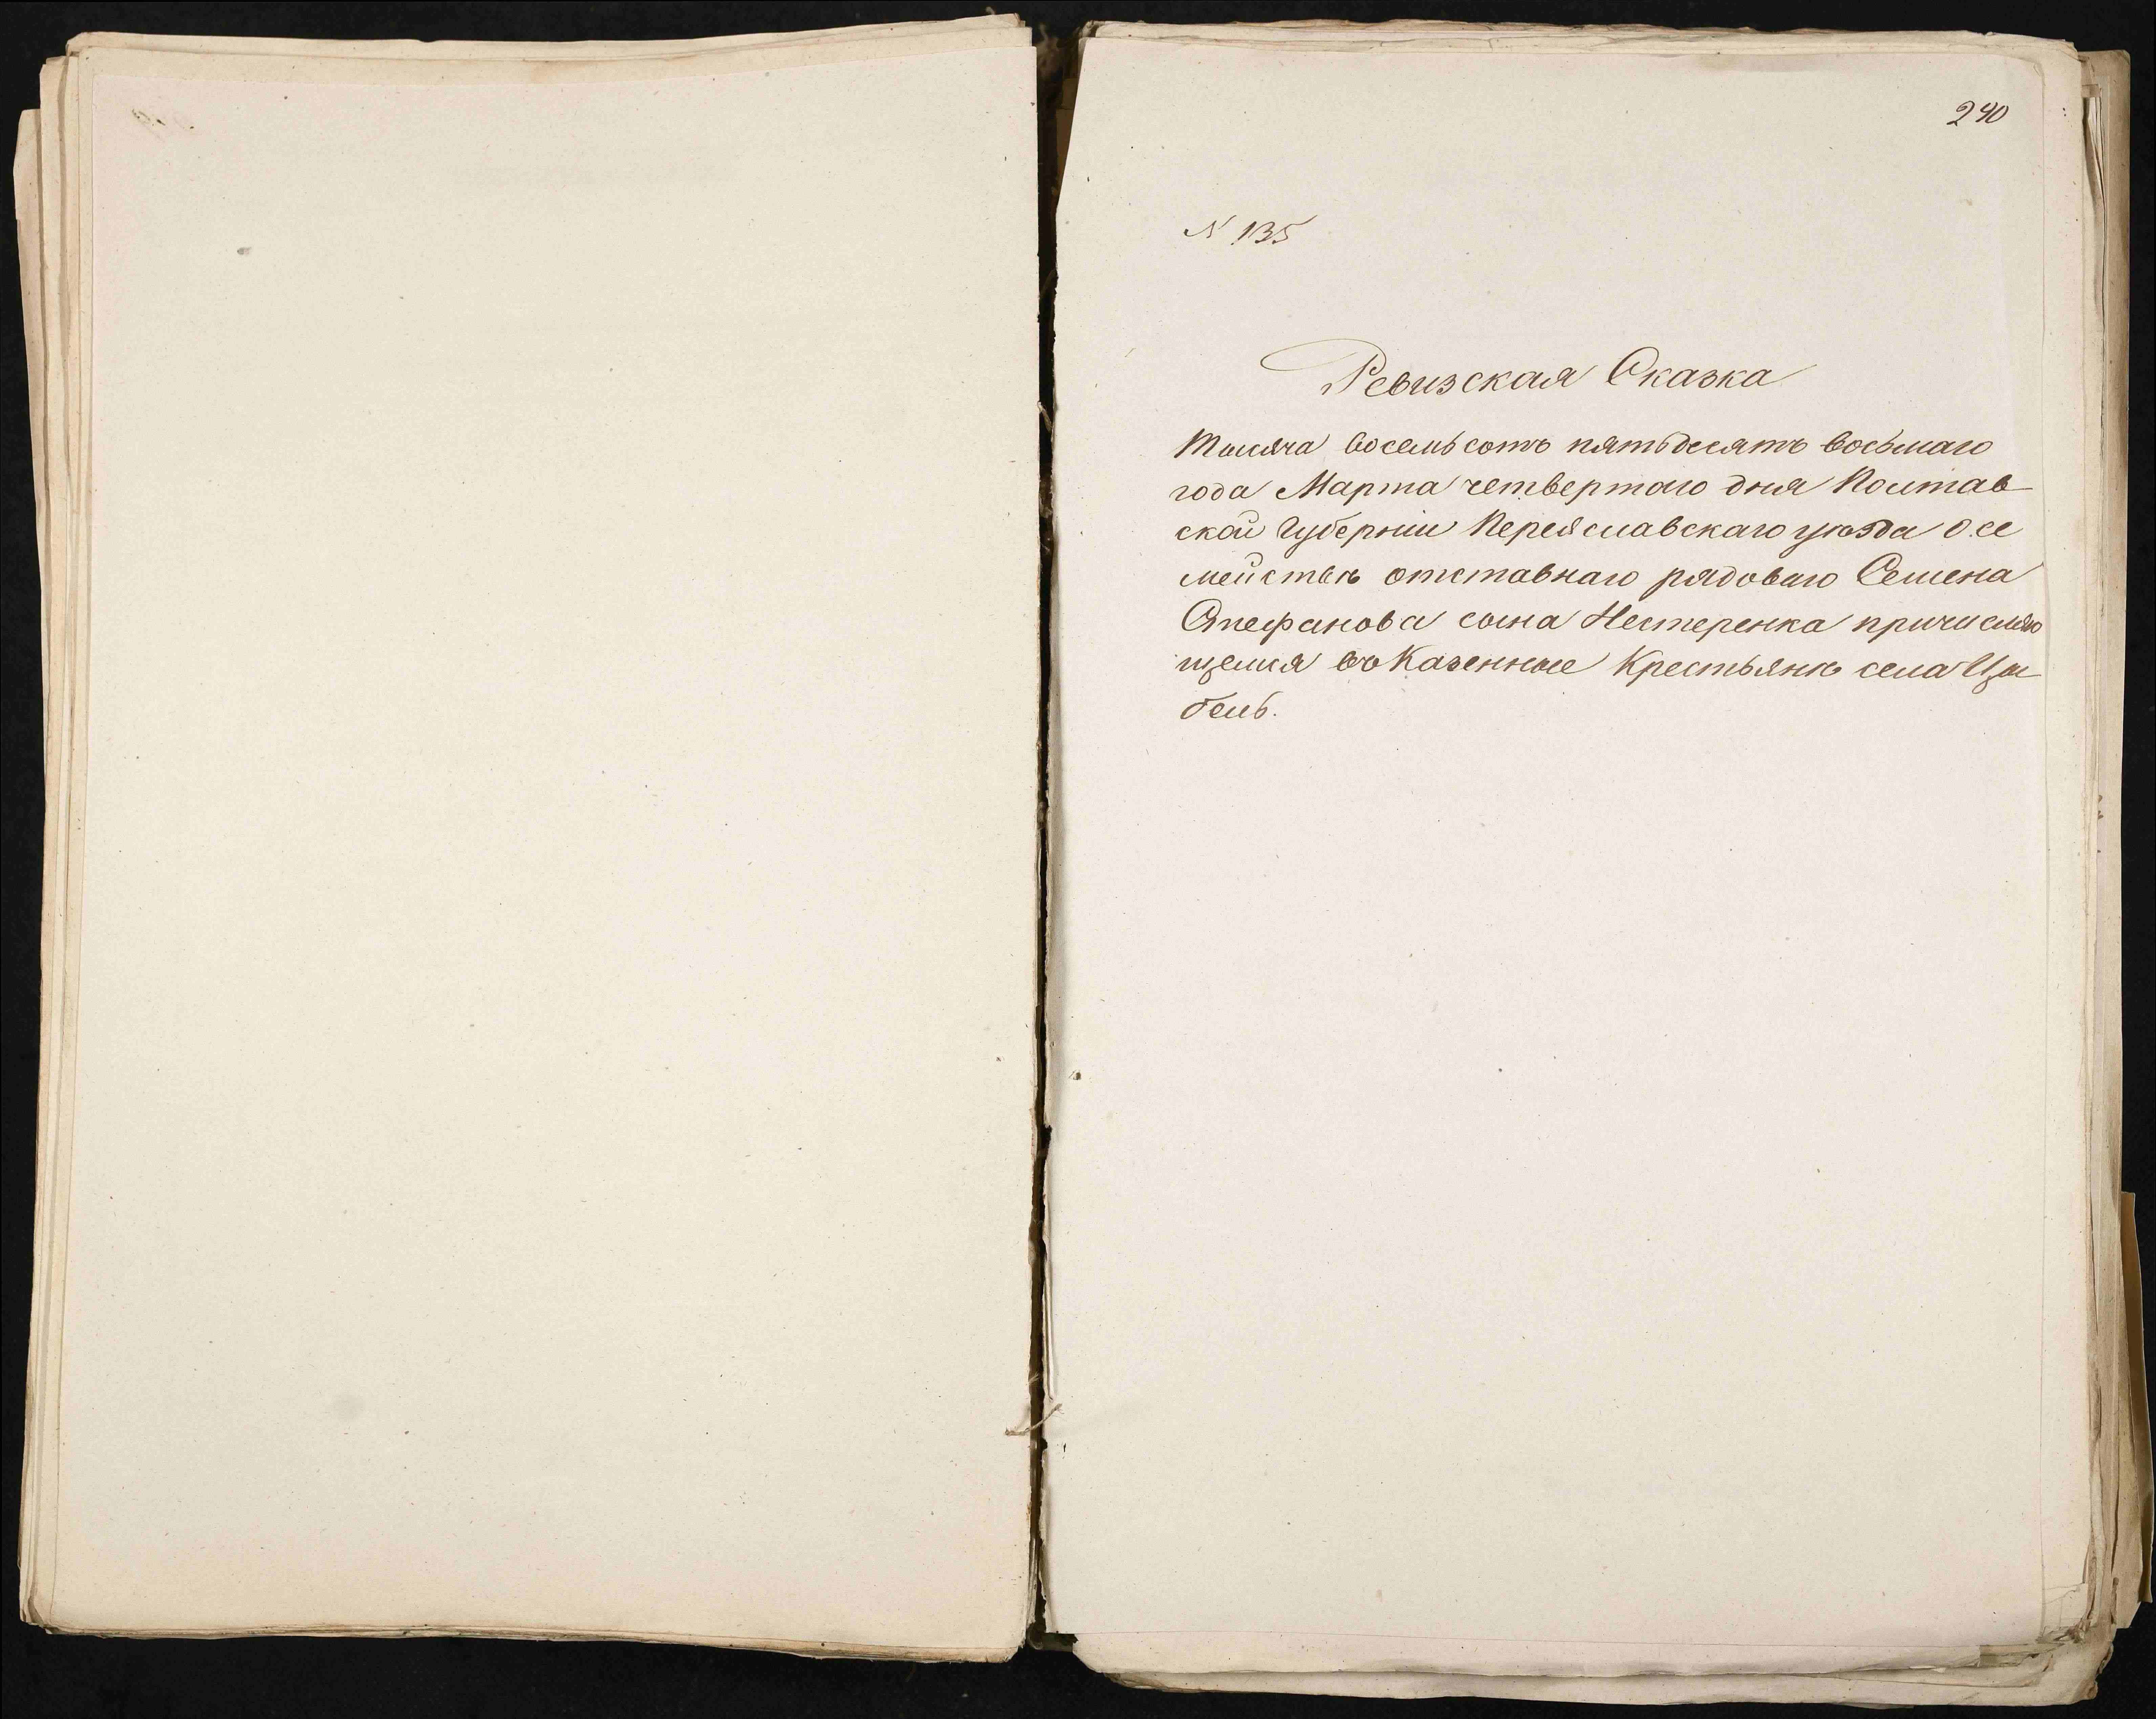 240
№ 135
Ревизская Сказка
Тысяча восемьсотъ пятьдесятъ восьмаго
года Марта четвертаго дня Полтав
ской Губерніи Переяславскаго уѣзда о се
мействѣ отставнаго рядоваго Семена
Стефанова сына Нестеренка причисляю
щемся въ Казенные Крестьянѣ села Цы
бель.